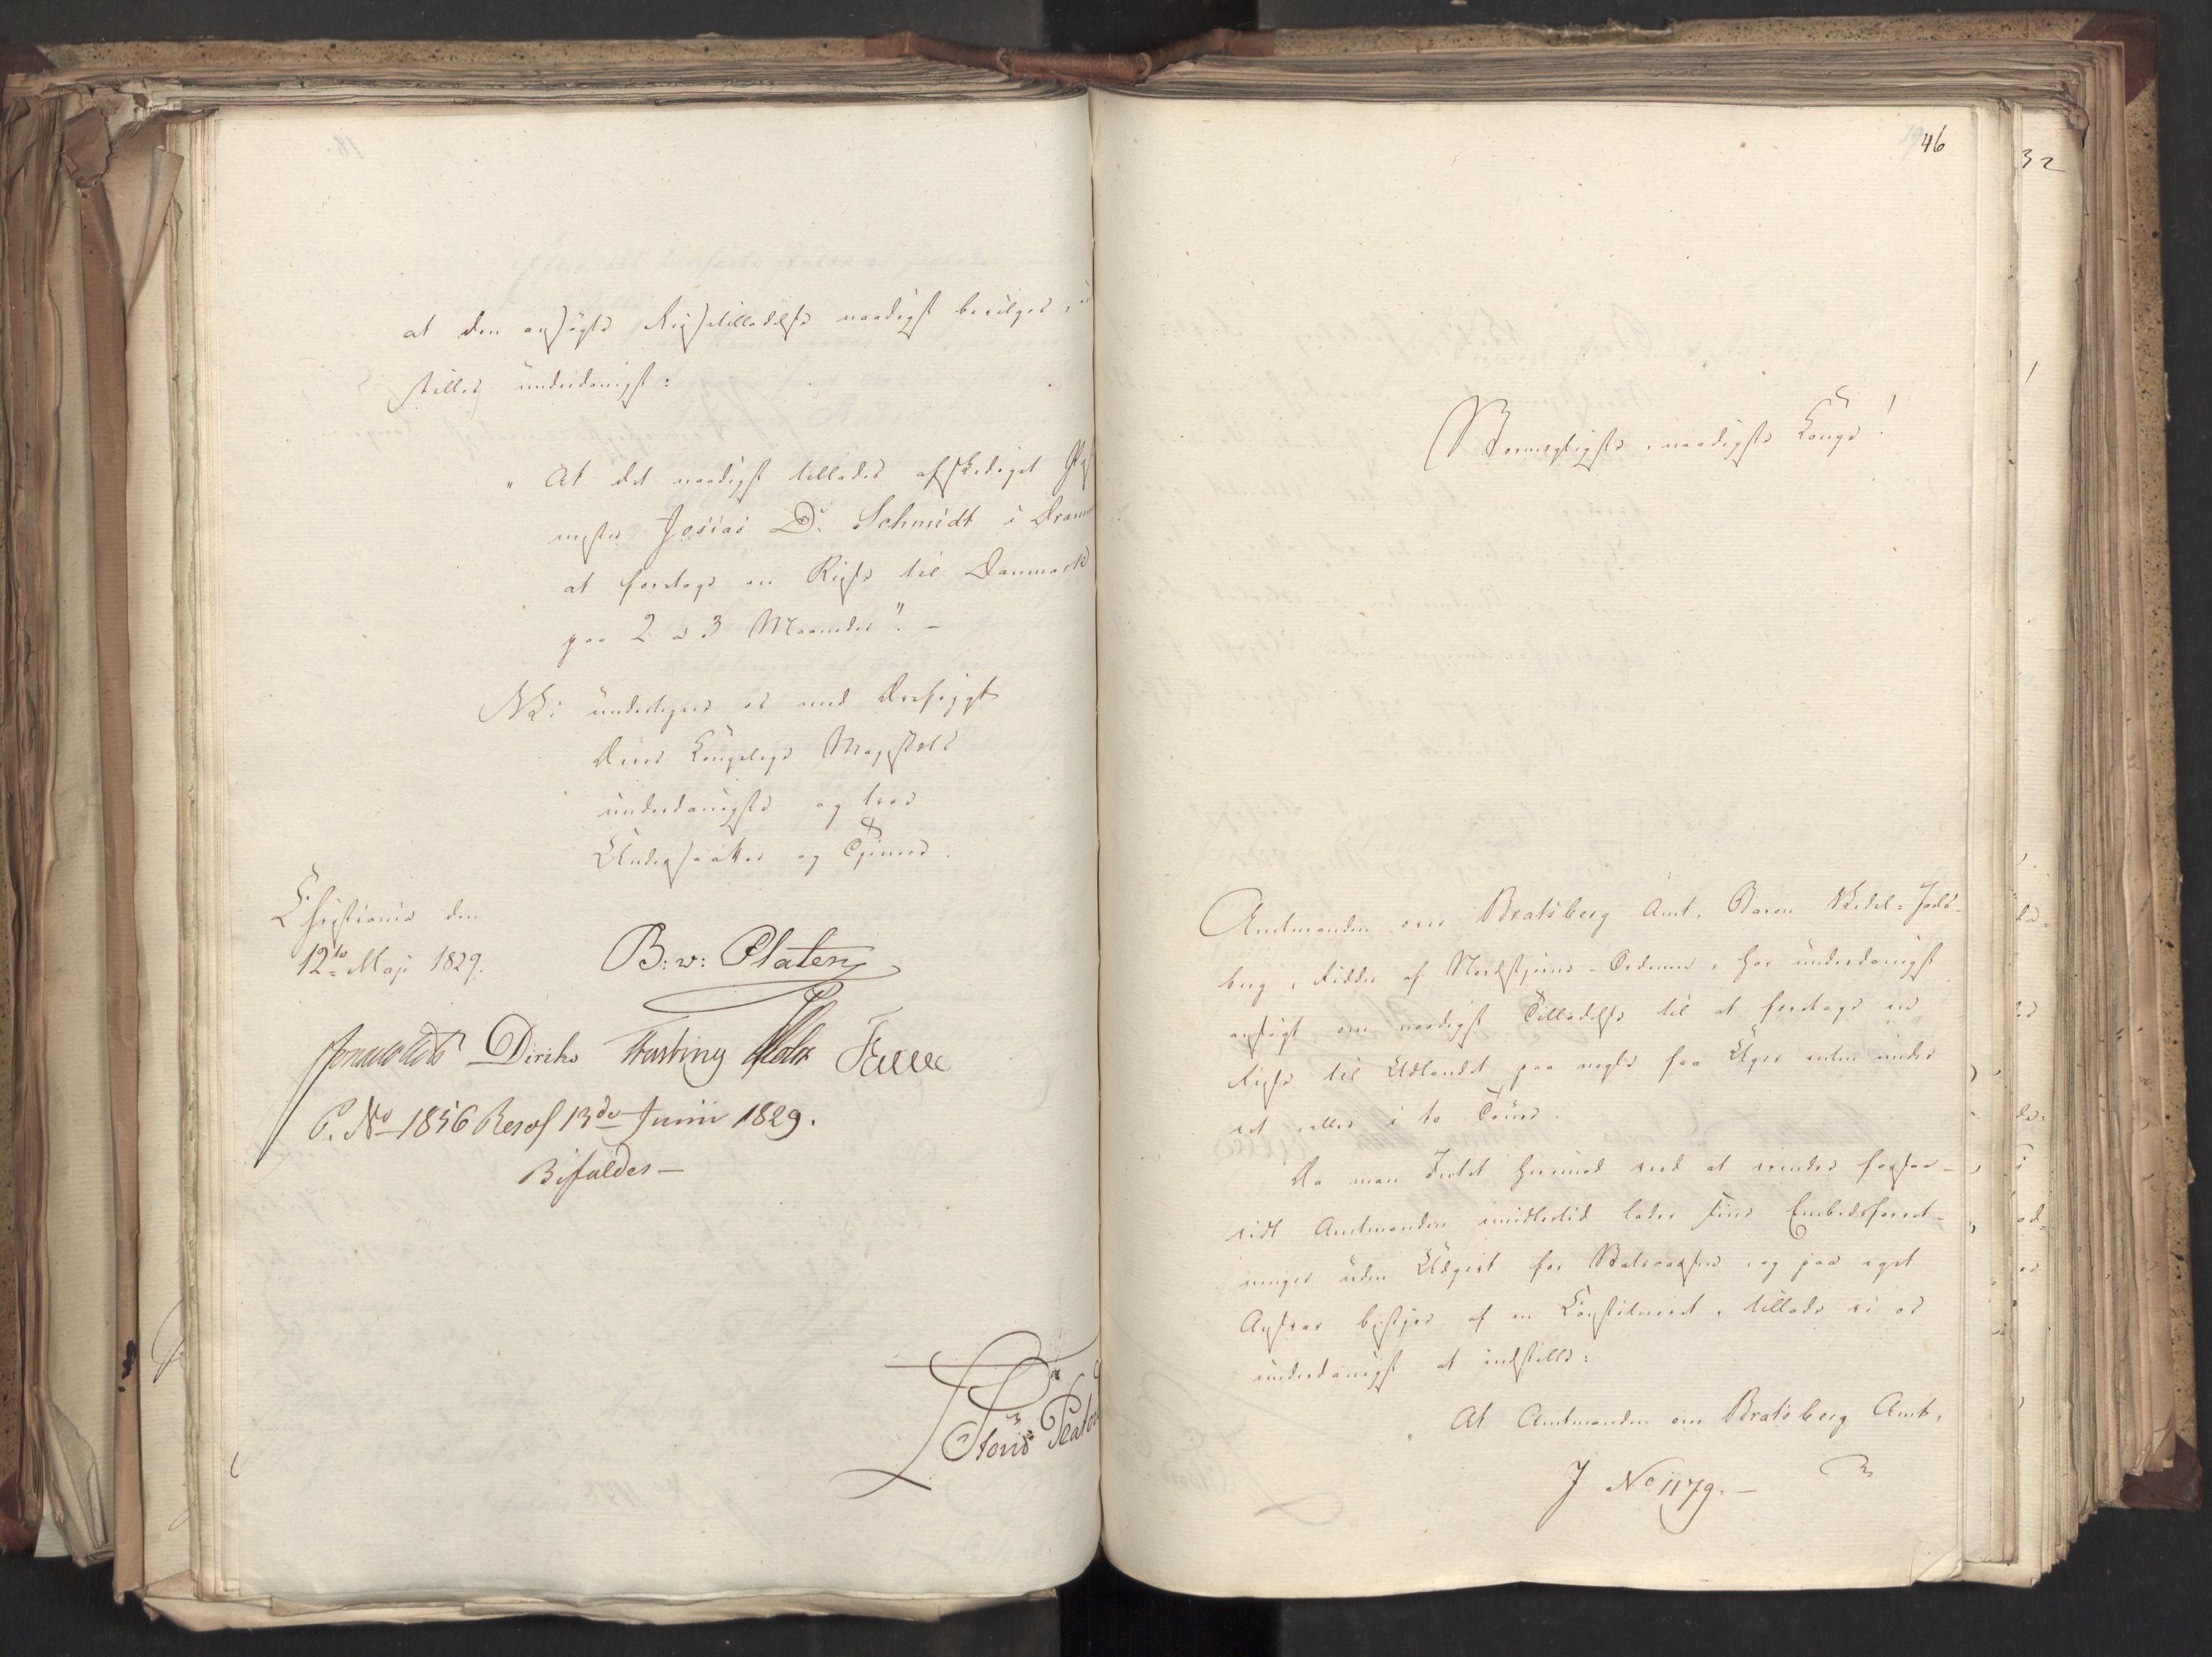 at den ansøgte Reisetilladelse naadigst bevilges, ind
stilles underdanigst:
"At det naadigst tillades afskediget
mester Josias D. Schmidt i Dramm
at foretage en Reise til Danmark
paa 2 a 3 Maaneder". -
Vi undertegne os med Ærefrygt
Deres Kongelige Majestæts
underdanigste og troe
Undersaatter og Tjenere.
Christiania den
12te Maji 1829.
B: v: Platen
Diriks Fasting Falbe
P. No 1856 Resol 13de Junii 1829.
Bifaldes -
46
32
Stormægtigste, naadigste Konge!
Amtmanden over Bratsberg Amt, Baron Wedel-Jarls-
berg, Ridder af Nordstjerne-Ordenen, har underdanigst
ansøgt om naadigst Tilladelse til at foretage en
Reise til Udlandet paa nogle faa Uger enten under
eet eller i to Tourer.
Da man Intet herimod veed at erindre forsaa-
vidt Amtmanden imidlertid lader sine Embedsforret-
ninger uden Udgivt for Statscassen og paa eget
Ansvar bestyre af en Constitueret, tillade vi os
underdanigst at indstille:
"At Amtmanden over Bratsberg Amt,
J No 1179. -